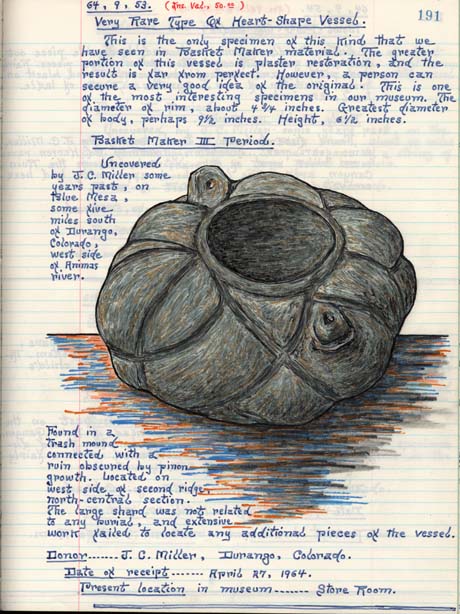 64, 9, 53. (Ins. Val., 50.00)
191
Very Rare Type Of Heart-Shape Vessel.
This is the only specimen of this kind that we
have seen in Basket Maker material. The greater
portion of this vessel is plaster restoration, and the
result is far from perfect. However, a person can
secure a very good idea of the original. This is one
of the most interesting specimens in our museum. The
diameter of rim, about 4 1/4 inches. Greatest diameter
of body, perhaps 9 1/2 inches. Height, 6 1/2 inches.
Basket Maker III Period.
Uncovered
by J. C. Miller some
years past, on
Blue Mesa,
some five
miles south
of Durango,
Colorado,
west side
of Animas
river.
Found in a
trash mound
connected with a
ruin obscured by pinon
growth. Located on
west side of second ridge,
north-central section.
The large shard was not related
to any burial, and extensive
work failed to locate any additional pieces of the vessel.
Donor------ J. C. Miller, Durango, Colorado.
Date of receipt------- April 27, 1964.
Present location in museum------- Store Room.